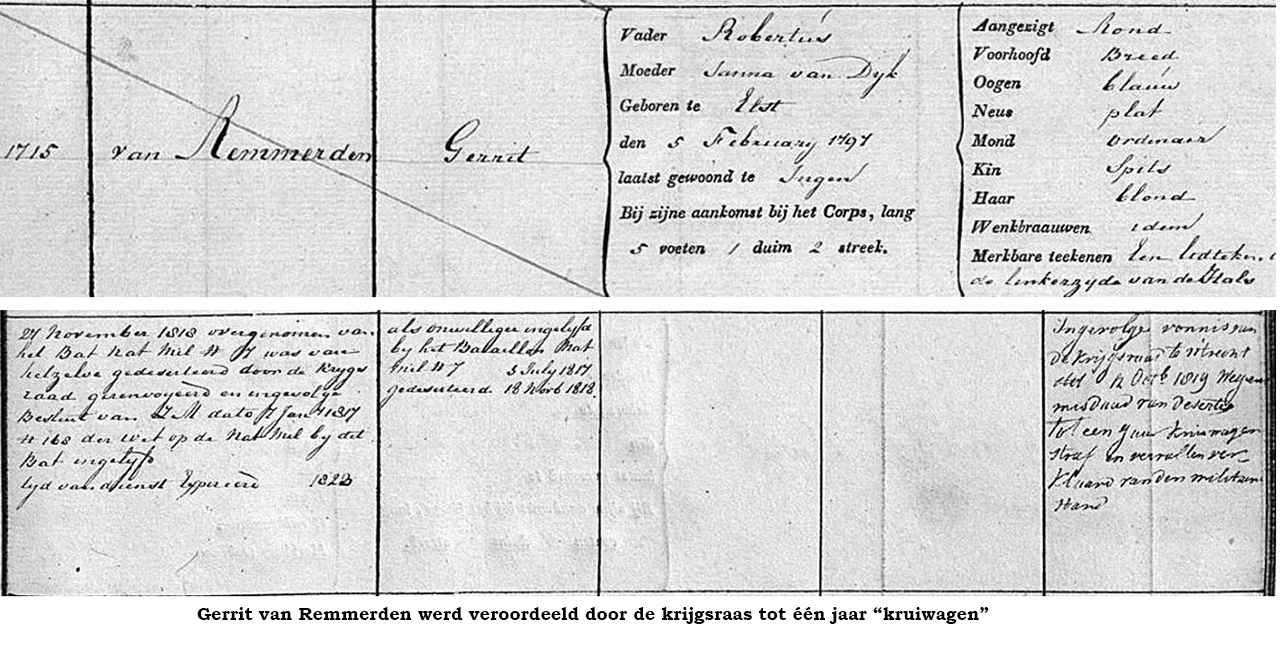 1715
van Remmerden
Gerrit
Vader Robertus
Moeder Janna van Dyk
Geboren te Elst
den 5 February 1797
laatst gewoond te Ingen
Bij zijne aankomst bij het Corps, lang
5 voeten 1 duim 2 streek.
Aangezigt Rond
Voorhoofd Breed
Oogen blauw
Neus plat
Mond ordinair
Kin Spits
Haar blond
Wenkbraauwen idem
Merkbare teekenen Een lidteken
de linkerzyde van de Hals
27 November 1818 overgenomen van
het Bat Nat Mil N 7 was van
hetzelve gedeserteerd door de Krygs
raad gerenvoyeerd en ingevolge
Besluit van Z M dato 7 Jan 1817
N 168 der Wet op de Nat Mil by dit
Bat ingelyfd
tyd van dienst Expireerd 1823
als onwilliger ingelyfd
by het Bataillon Nat
Mil N 7 3 July 1817
gedeserteerd 18 Novb 1818.
Ingevolge vonnis van
de Krijgsraad te Utrecht
dd 12 Octb 1819 wegens
misdaad van desertie
tot een jaar Kruiwagen
straf en vervallen ver-
klaard van den militairen
stand
Gerrit van Remmerden werd veroordeeld door de krijgsraas tot één jaar “kruiwagen”